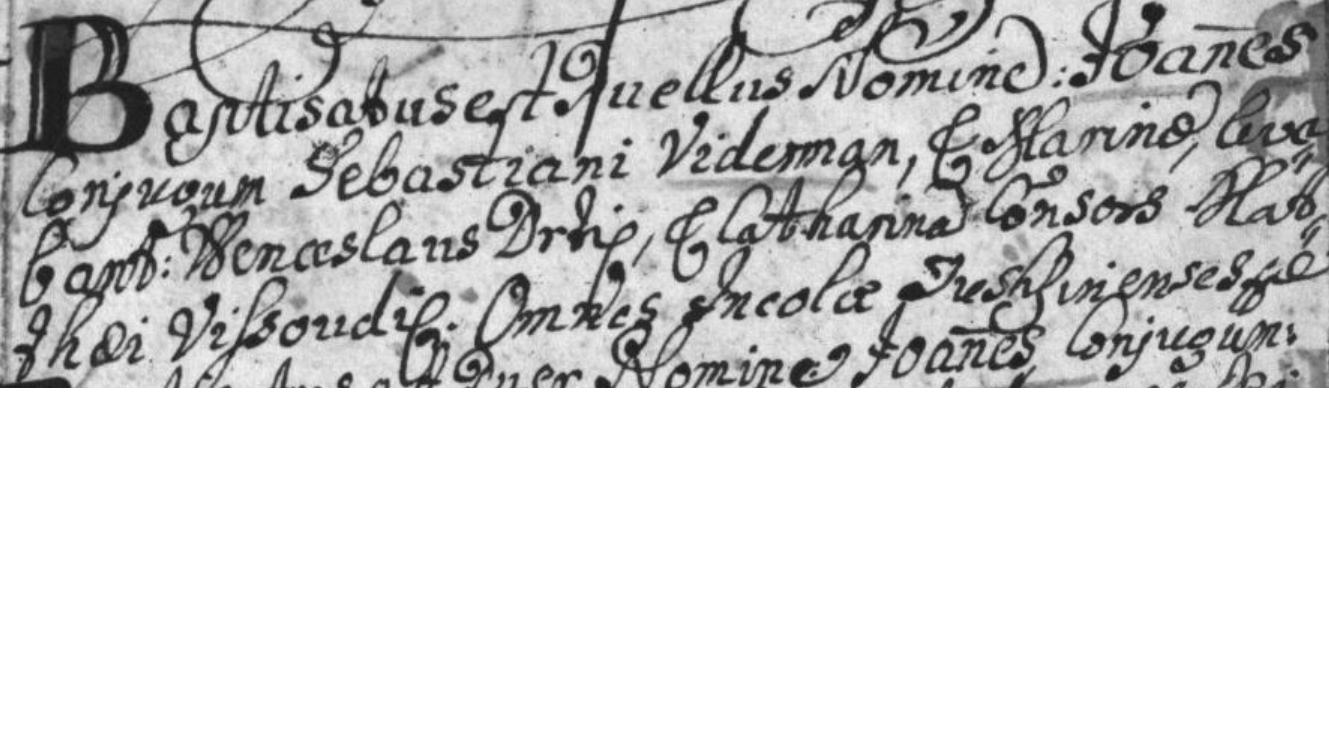 Baptisatus est Puellus Nomine: Joan̄es
Conjugum Sebastiani Viderman, & Marinæ, leva
bant: Wenceslaus Drtip, & Catharina Consors Mat
thæi Vissoudil. Omnes Incolæ
Puer Nomine Joan̄es Conjugum: